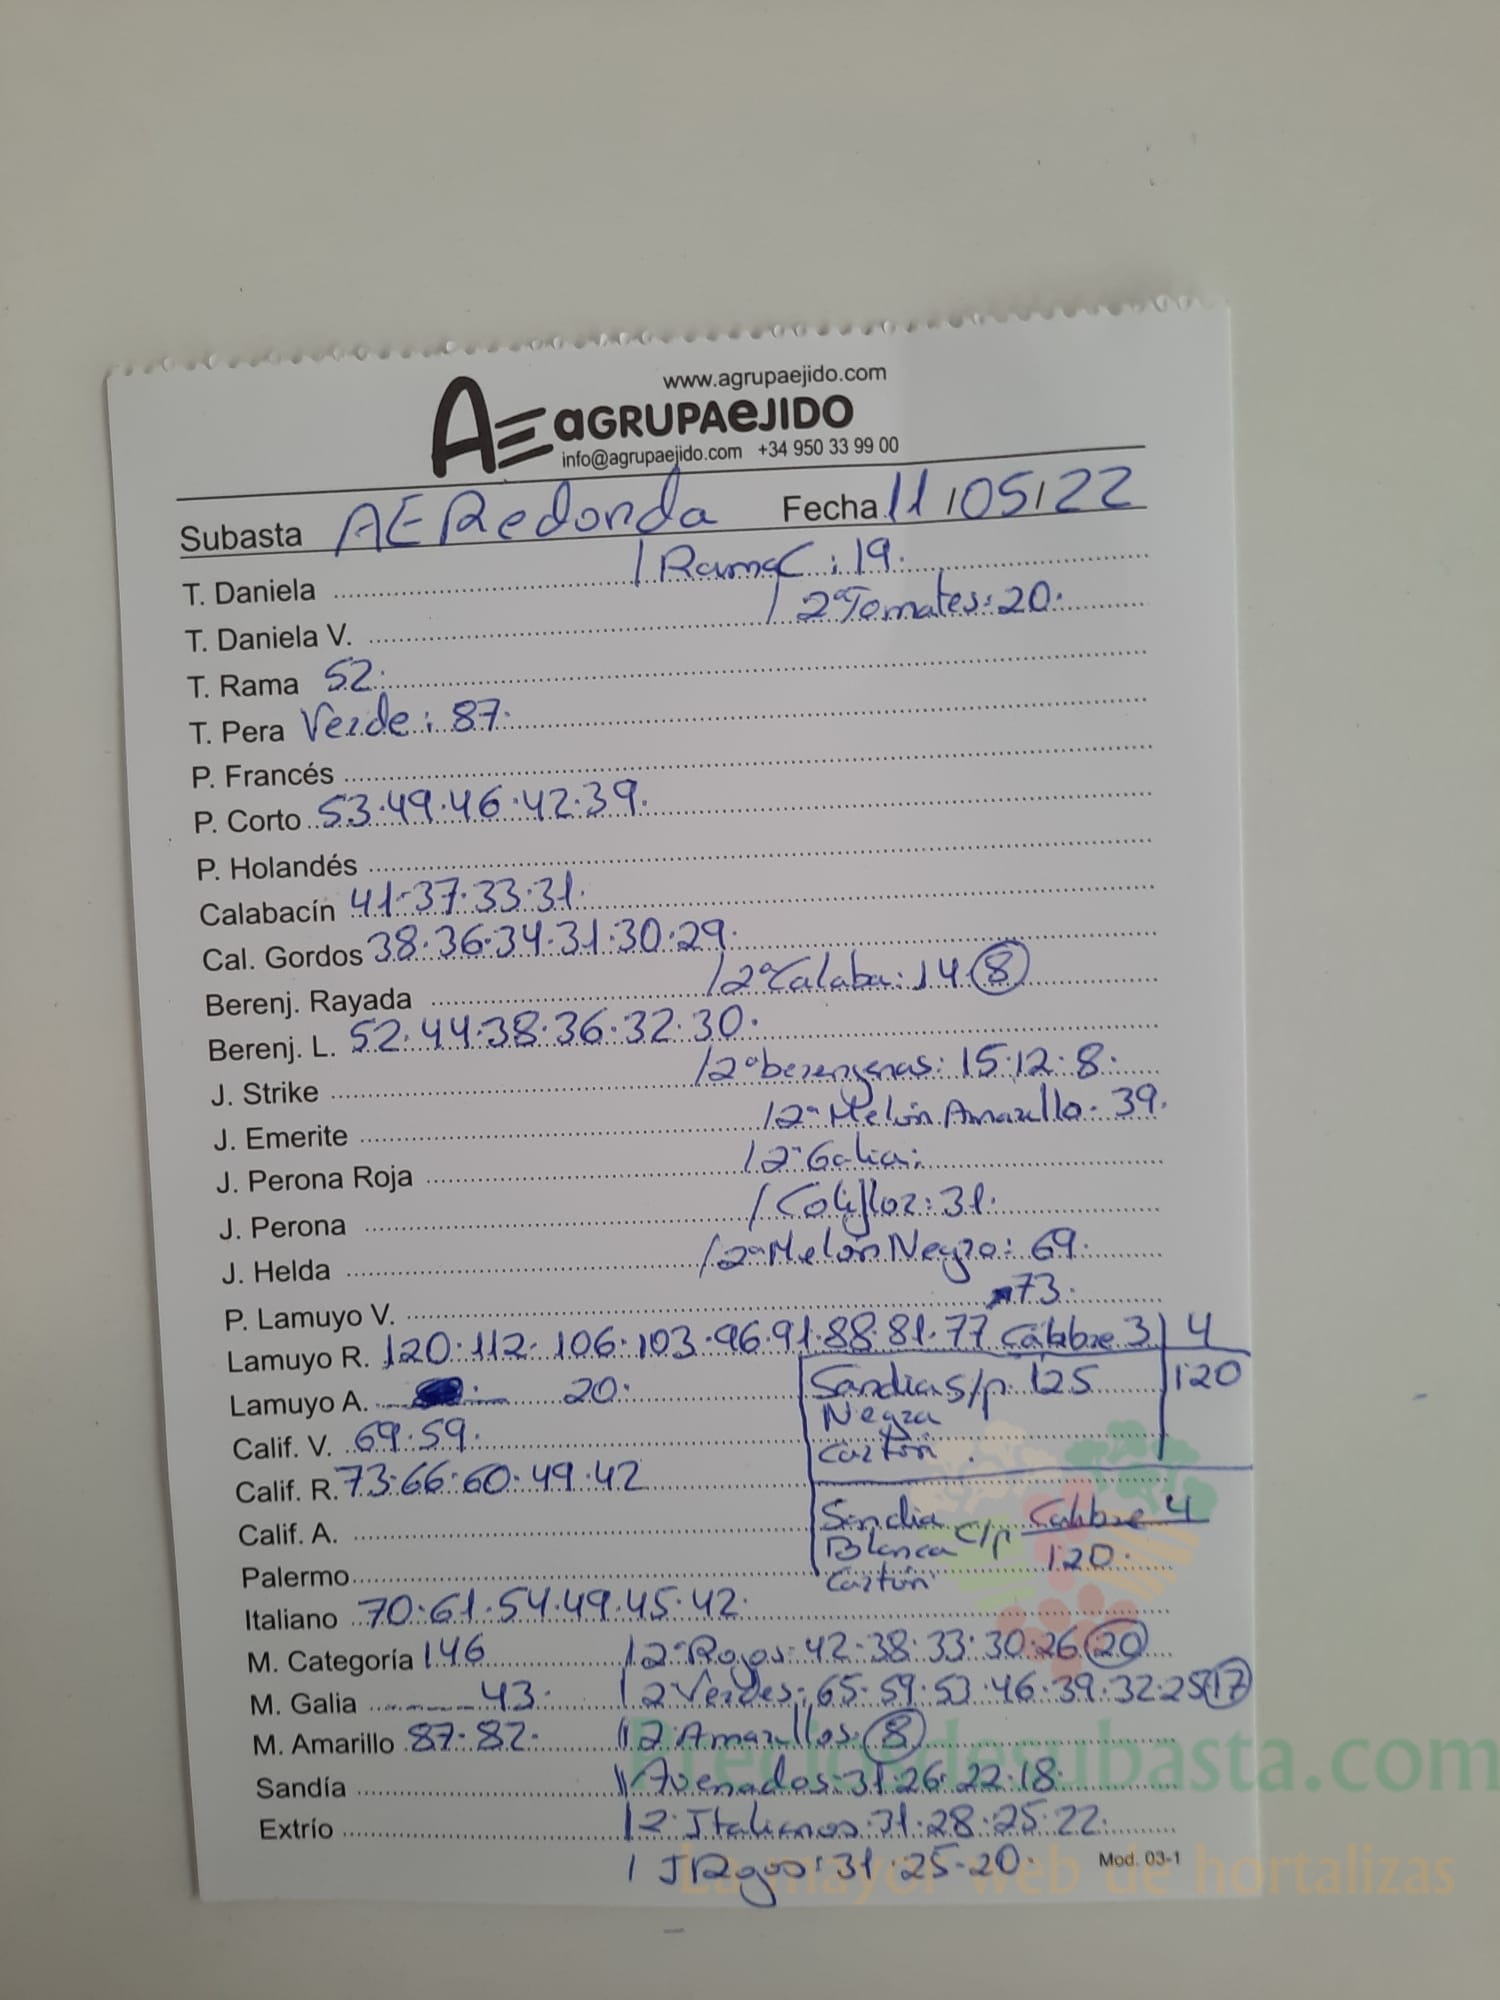 www.agrupaejido.com
AE aGRUPAeJIDO
info@agrupaejido.com +34 950 33 99 00
Subasta AE Redonda Fecha 11/05/22
T. Daniela / Rama C: 19.
T. Daniela V. / 2ª Tomates: 20.
T. Rama 52.
T. Pera Verde: 87.
P. Francés
P. Corto 53.49.46.42.39.
P. Holandés
Calabacín 41-37.33.31.
Cal. Gordos 38.36.34.31.30.29.
Berenj. Rayada / 2ª Calaba: 14. 8
Berenj. L. 52.44.38.36.32.30.
J. Strike / 2ª berenjenas: 15.12.8.
J. Emerite / 2ª Melón Amarillo. 39.
J. Perona Roja / 2ª Galia:
J. Perona / Coliflor: 31.
J. Helda / 2ª Melón Negro: 69.
P. Lamuyo V. 73.
Lamuyo R. 120.112.106.103.96.91.88.81.77 Calibre 3 | 4
Lamuyo A. 20. Sandía s/p 125 | 120
Negra
Calif. V. 69.59. Cartón.
Calif. R. 73.66.60.49.42
Calif. A. Sandia c/p Calibre 4
Blanca 120.
Palermo Cartón
Italiano 70.61.54.49.45.42.
M. Categoría 146 / 2ª Rojos: 42.38.33.30.26 20
M. Galia 43. / 2 Verdes: 65.59.53.46.39.32.25 17
M. Amarillo 87.82. / 2 Amarillos 8
Sandía / Avenados: 31.26.22.18
Extrío / 2. Italianos: 31.28.25.22.
/ J Rojos: 31.25-20. Mod. 03-1
Preciosdesubasta.com
La mayor web de hortalizas